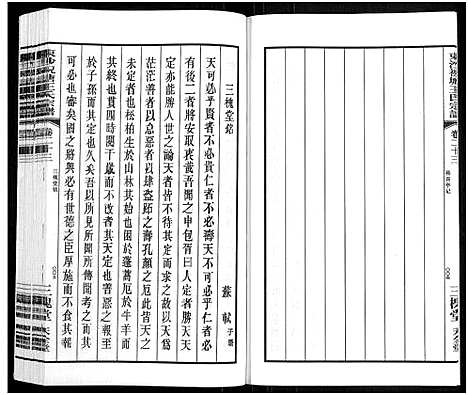 東沙祝塘王氏宗譜
卷二十三
三槐堂
天全堂
三槐堂銘
蘇軾 子瞻
天可必乎賢者不必貴仁者不必壽天不可必乎仁者必
有後二者將安取衷哉吾聞之申包胥曰人定者勝天天
定亦能勝人世之論天者皆不待其定而求之故以天爲
茫茫善者以怠惡者以肆盜跖之壽孔顏之厄此皆天之
未定者也松柏生於山林其始也困於蓬蒿厄於牛羊而
其終也貫四時閱千歲而不改者其天定也善惡之報至
於子孫則其定也久矣吾以所見所聞所傳聞考之而其
可必也審矣國之將興必有世德之臣厚施而不食其報
三槐堂銘
東沙祝塘王氏宗譜
卷二十三
三槐堂
天全堂